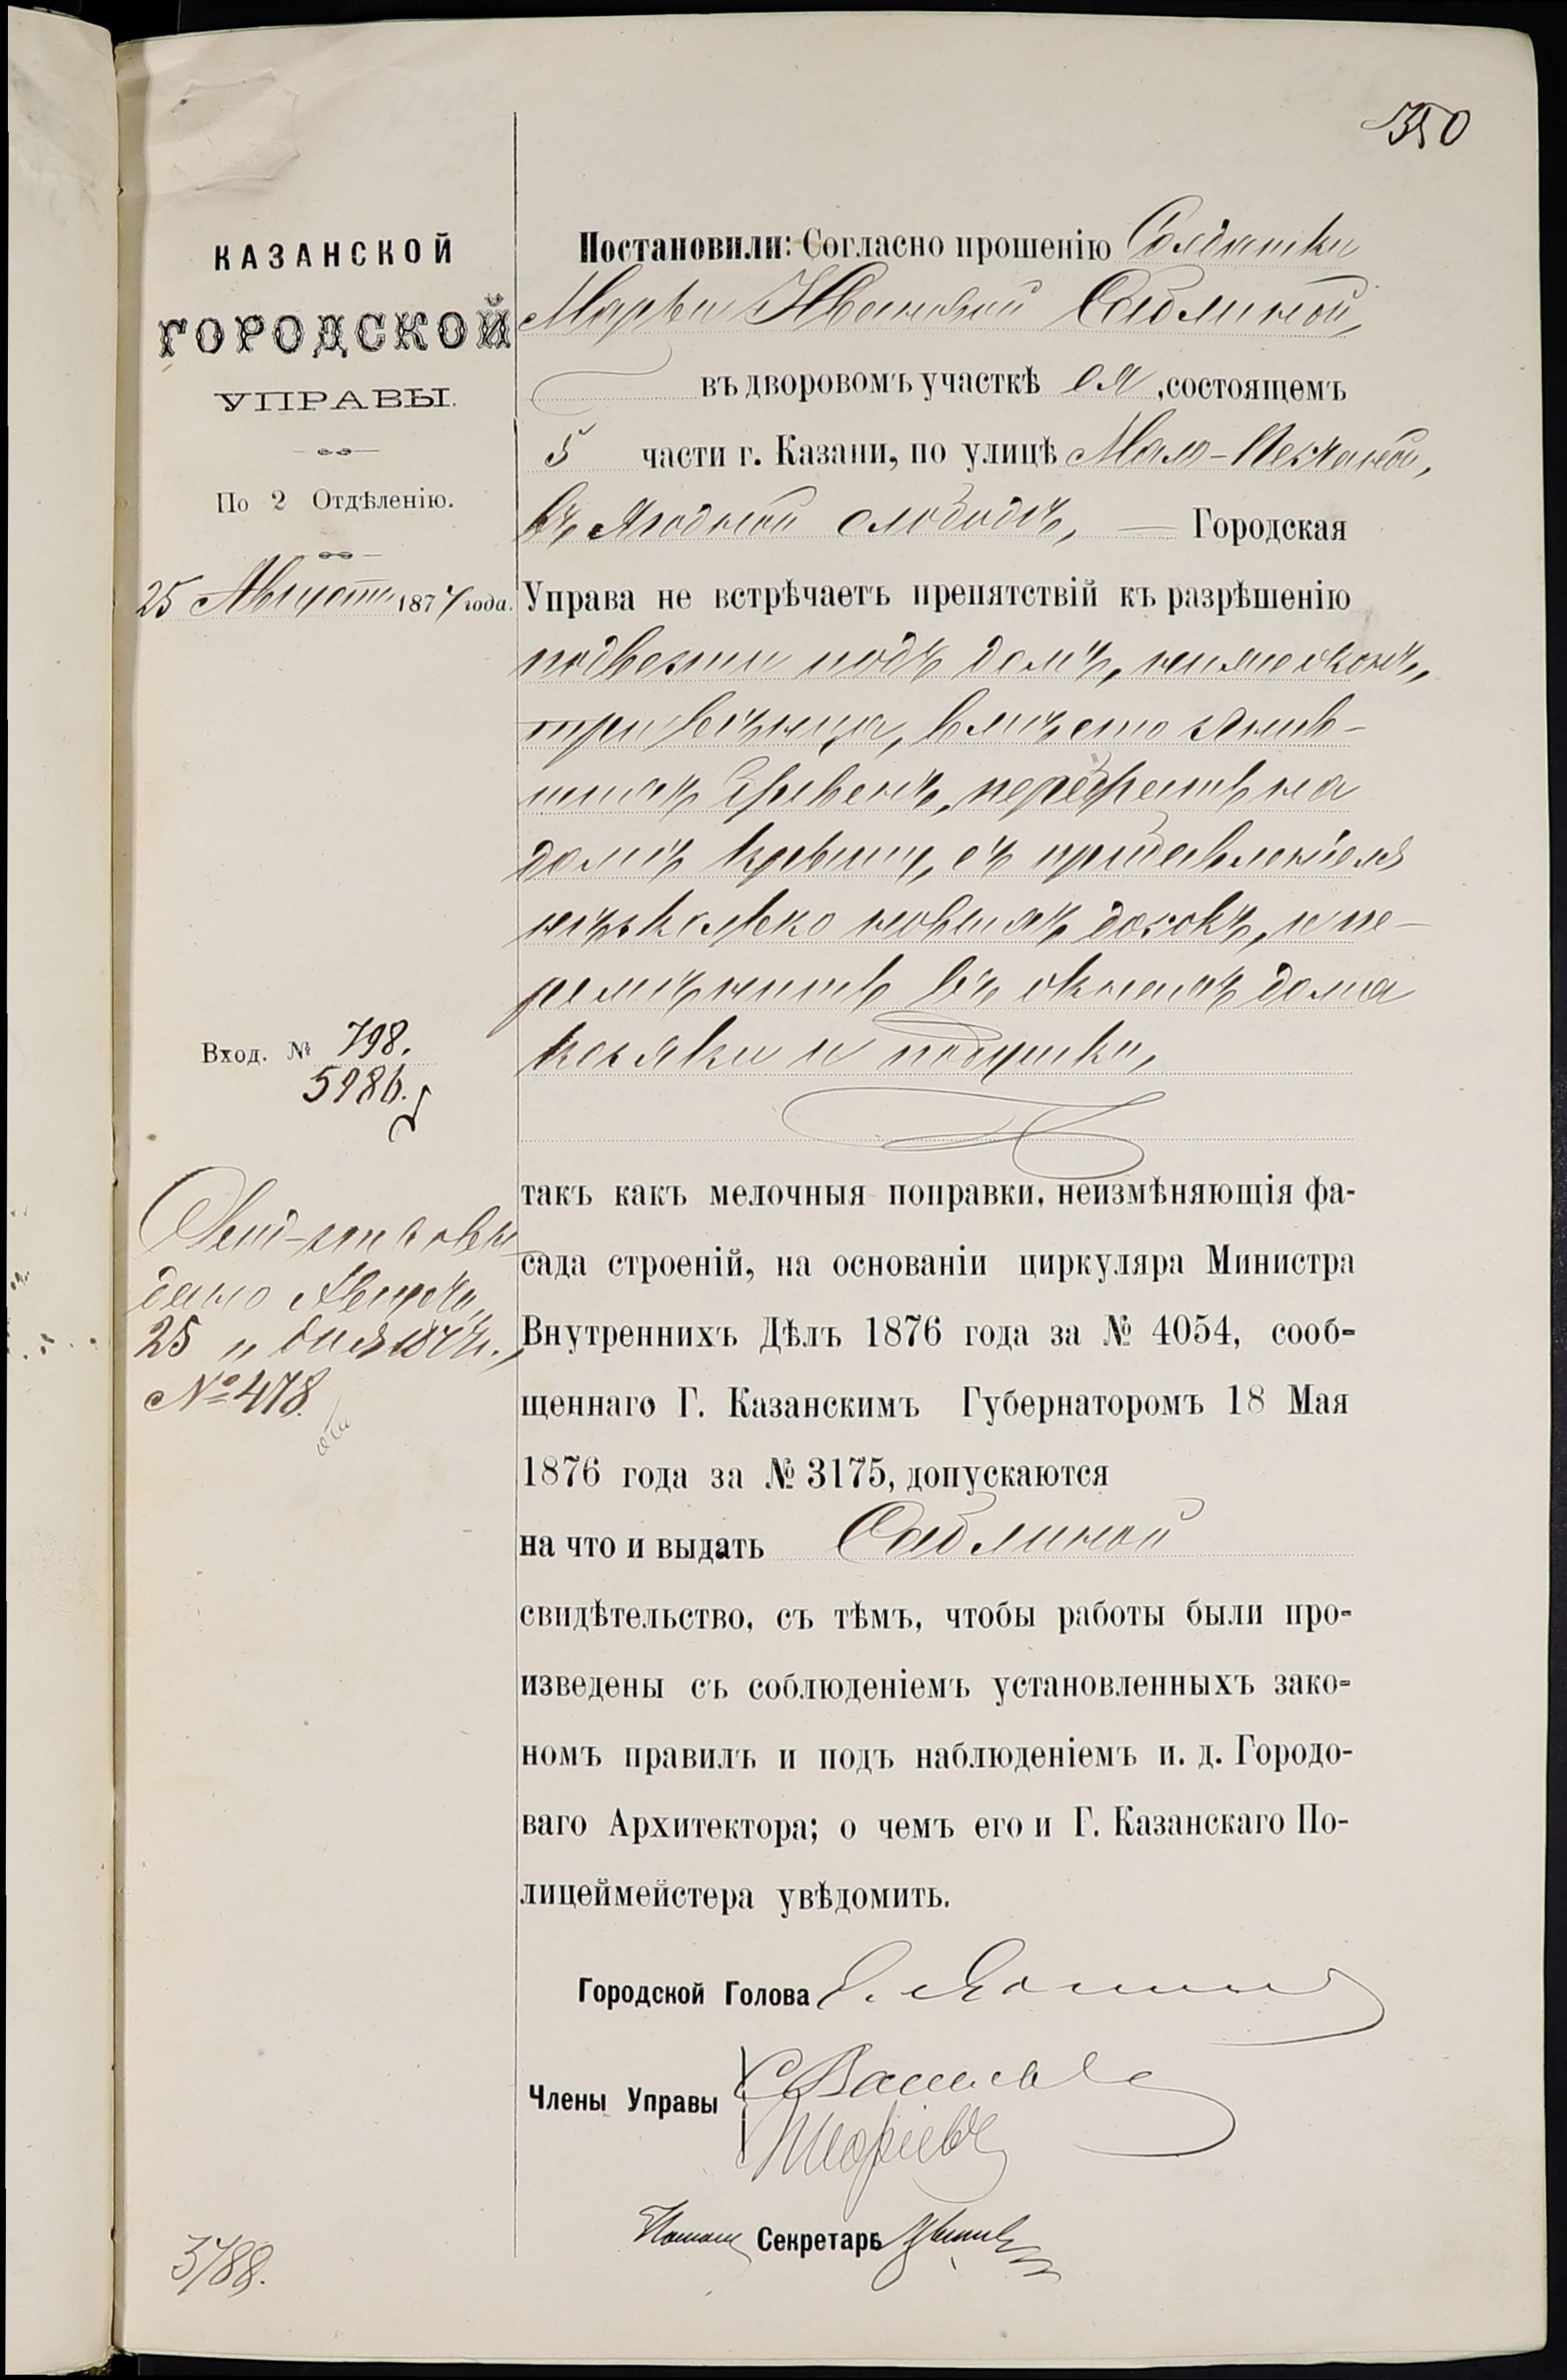 350
КАЗАНСКОЙ
ГОРОДСКОЙ
УПРАВЫ.
По 2 Отдѣленію.
25 Августа 1877 года.
Вход. № 798.
5986.
Свид-
дано Августа
25 „ дня 1877 г.,
№ 478.
3788.
Постановили: Согласно прошенію Солдатки
Марьи Ивановой Саблиной,
въ дворовомъ участкѣ ея, состоящемъ
5 части г. Казани, по улицѣ Мало-Песчаной,
въ Ягодной слободѣ, — Городская
Управа не встрѣчаетъ препятствій къ разрѣшенію
подвести подъ домъ, ниже оконъ,
три вѣнца, вмѣсто згнив-
шихъ бревенъ, перекрыть на
домѣ крышу, съ прибавленіемъ
нѣсколько новыхъ досокъ, и пе-
ремѣнить въ окнахъ дома
косяки и подушки,
такъ какъ мелочныя поправки, неизмѣняющія фа-
сада строеній, на основаніи циркуляра Министра
Внутреннихъ Дѣлъ 1876 года за № 4054, сооб-
щеннаго Г. Казанскимъ Губернаторомъ 18 Мая
1876 года за № 3175, допускаются
на что и выдать Саблиной
свидѣтельство, съ тѣмъ, чтобы работы были про-
изведены съ соблюденіемъ установленныхъ зако-
номъ правилъ и подъ наблюденіемъ и. д. Городо-
ваго Архитектора; о чемъ его и Г. Казанскаго По-
лицеймейстера увѣдомить.
Городской Голова
Члены Управы
Секретарь